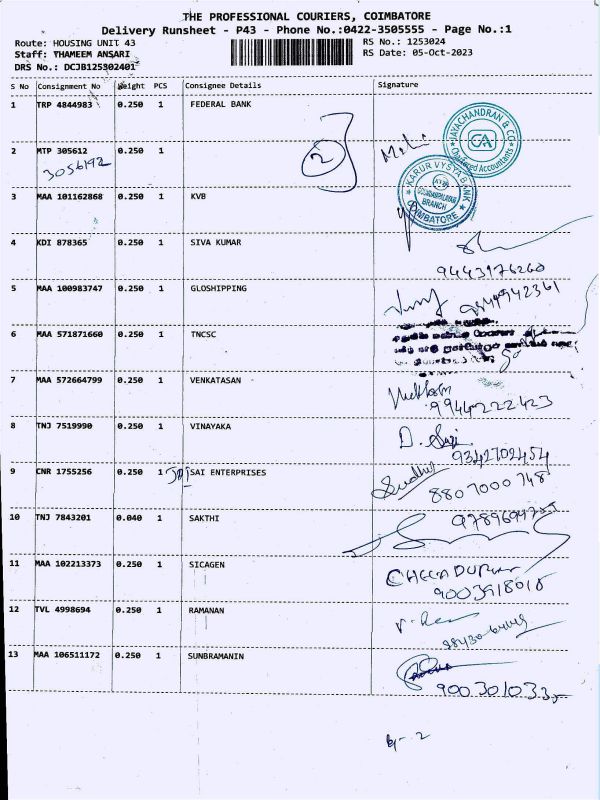 THE PROFESSIONAL COURIERS, COIMBATORE
Delivery Runsheet - P43 - Phone No.:0422-3505555 - Page No.:1
Route: HOUSING UNIT 43 RS No.: 1253024
Staff: THAMEEM ANSARI RS Date: 05-Oct-2023
DRS No.: DCJB125302401
S No Consignment No Weight PCS Consignee Details Signature
1 TRP 4844983 0.250 1 FEDERAL BANK
JAYACHANDRAN & CO
CA
Chartered Accountants
2 MTP 305612 0.250 1
3056192
2
KARUR VYSYA BANK
BRANCH
COIMBATORE
3 MAA 101162868 0.250 1 KVB
4 KDI 878365 0.250 1 SIVA KUMAR
9443176260
5 MAA 100983747 0.250 1 GLOSHIPPING
6 MAA 571871660 0.250 1 TNCSC
7 MAA 572664799 0.250 1 VENKATASAN
9944222423
8 TNJ 7519990 0.250 1 VINAYAKA
9342702454
9 CNR 1755256 0.250 1 SAI ENTERPRISES
8807000748
10 TNJ 7843201 0.040 1 SAKTHI
11 MAA 102213373 0.250 1 SICAGEN
9003918015
12 TVL 4998694 0.250 1 RAMANAN
13 MAA 106511172 0.250 1 SUNBRAMANIN